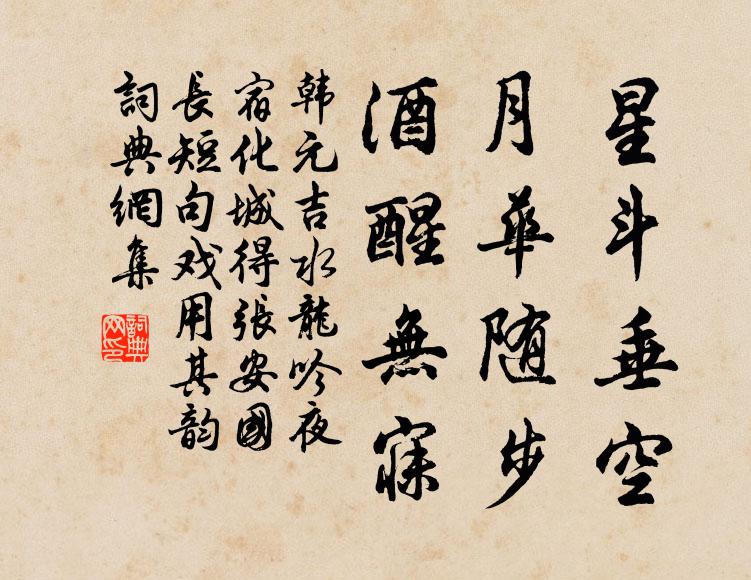 星斗垂空
月華随步
酒醒無寐
韩元吉水龍吟夜
宿化城得張安國
長短句戏用其韵
詞典網集
詞典
网印